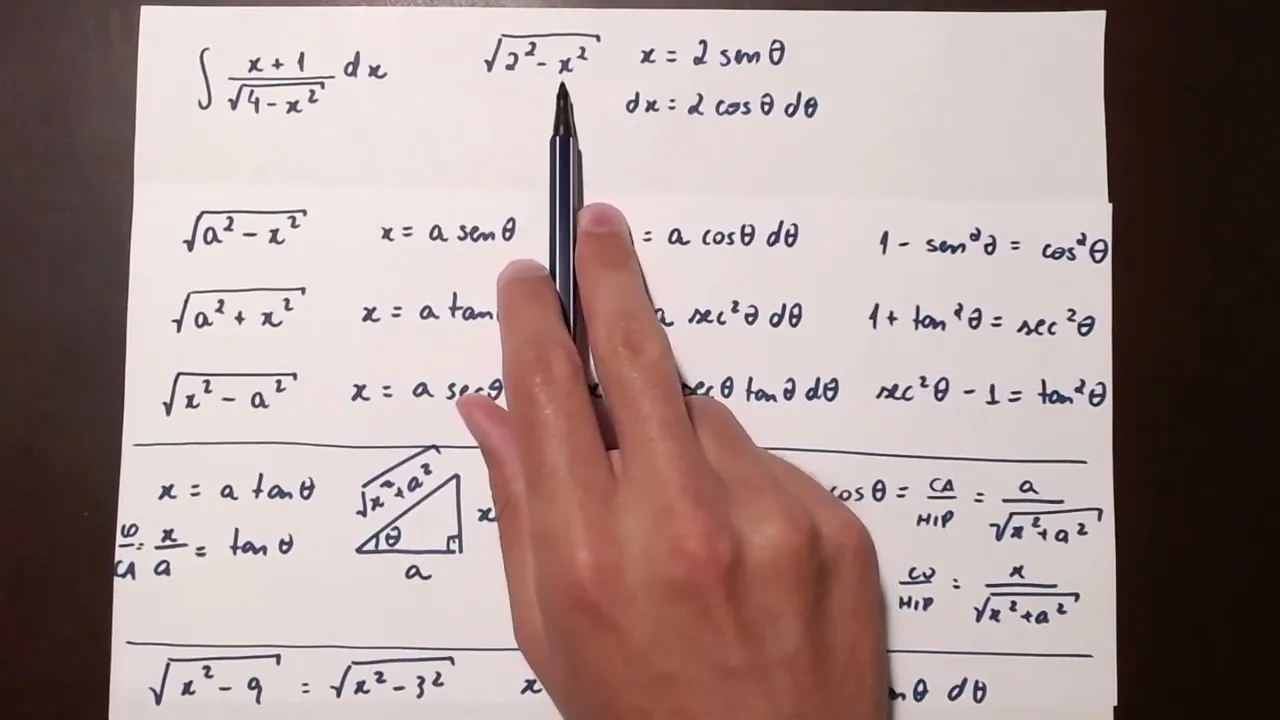 ∫ x + 1 / √(4 - x²) dx √(2² - x²) x = 2 sen θ
dx = 2 cos θ dθ
√(a² - x²) x = a sen θ = a cos θ dθ 1 - sen²θ = cos²θ
√(a² + x²) x = a tan sec²θ dθ 1 + tan²θ = sec²θ
√(x² - a²) x = a sec θ tan θ dθ sec²θ - 1 = tan²θ
x = a tan θ √(x² + a²) θ a x cos θ = CA / HIP = a / √(x² + a²)
CO / CA = x / a = tan θ CO / HIP = x / √(x² + a²)
√(x² - 9) = √(x² - 3²) x θ dθ